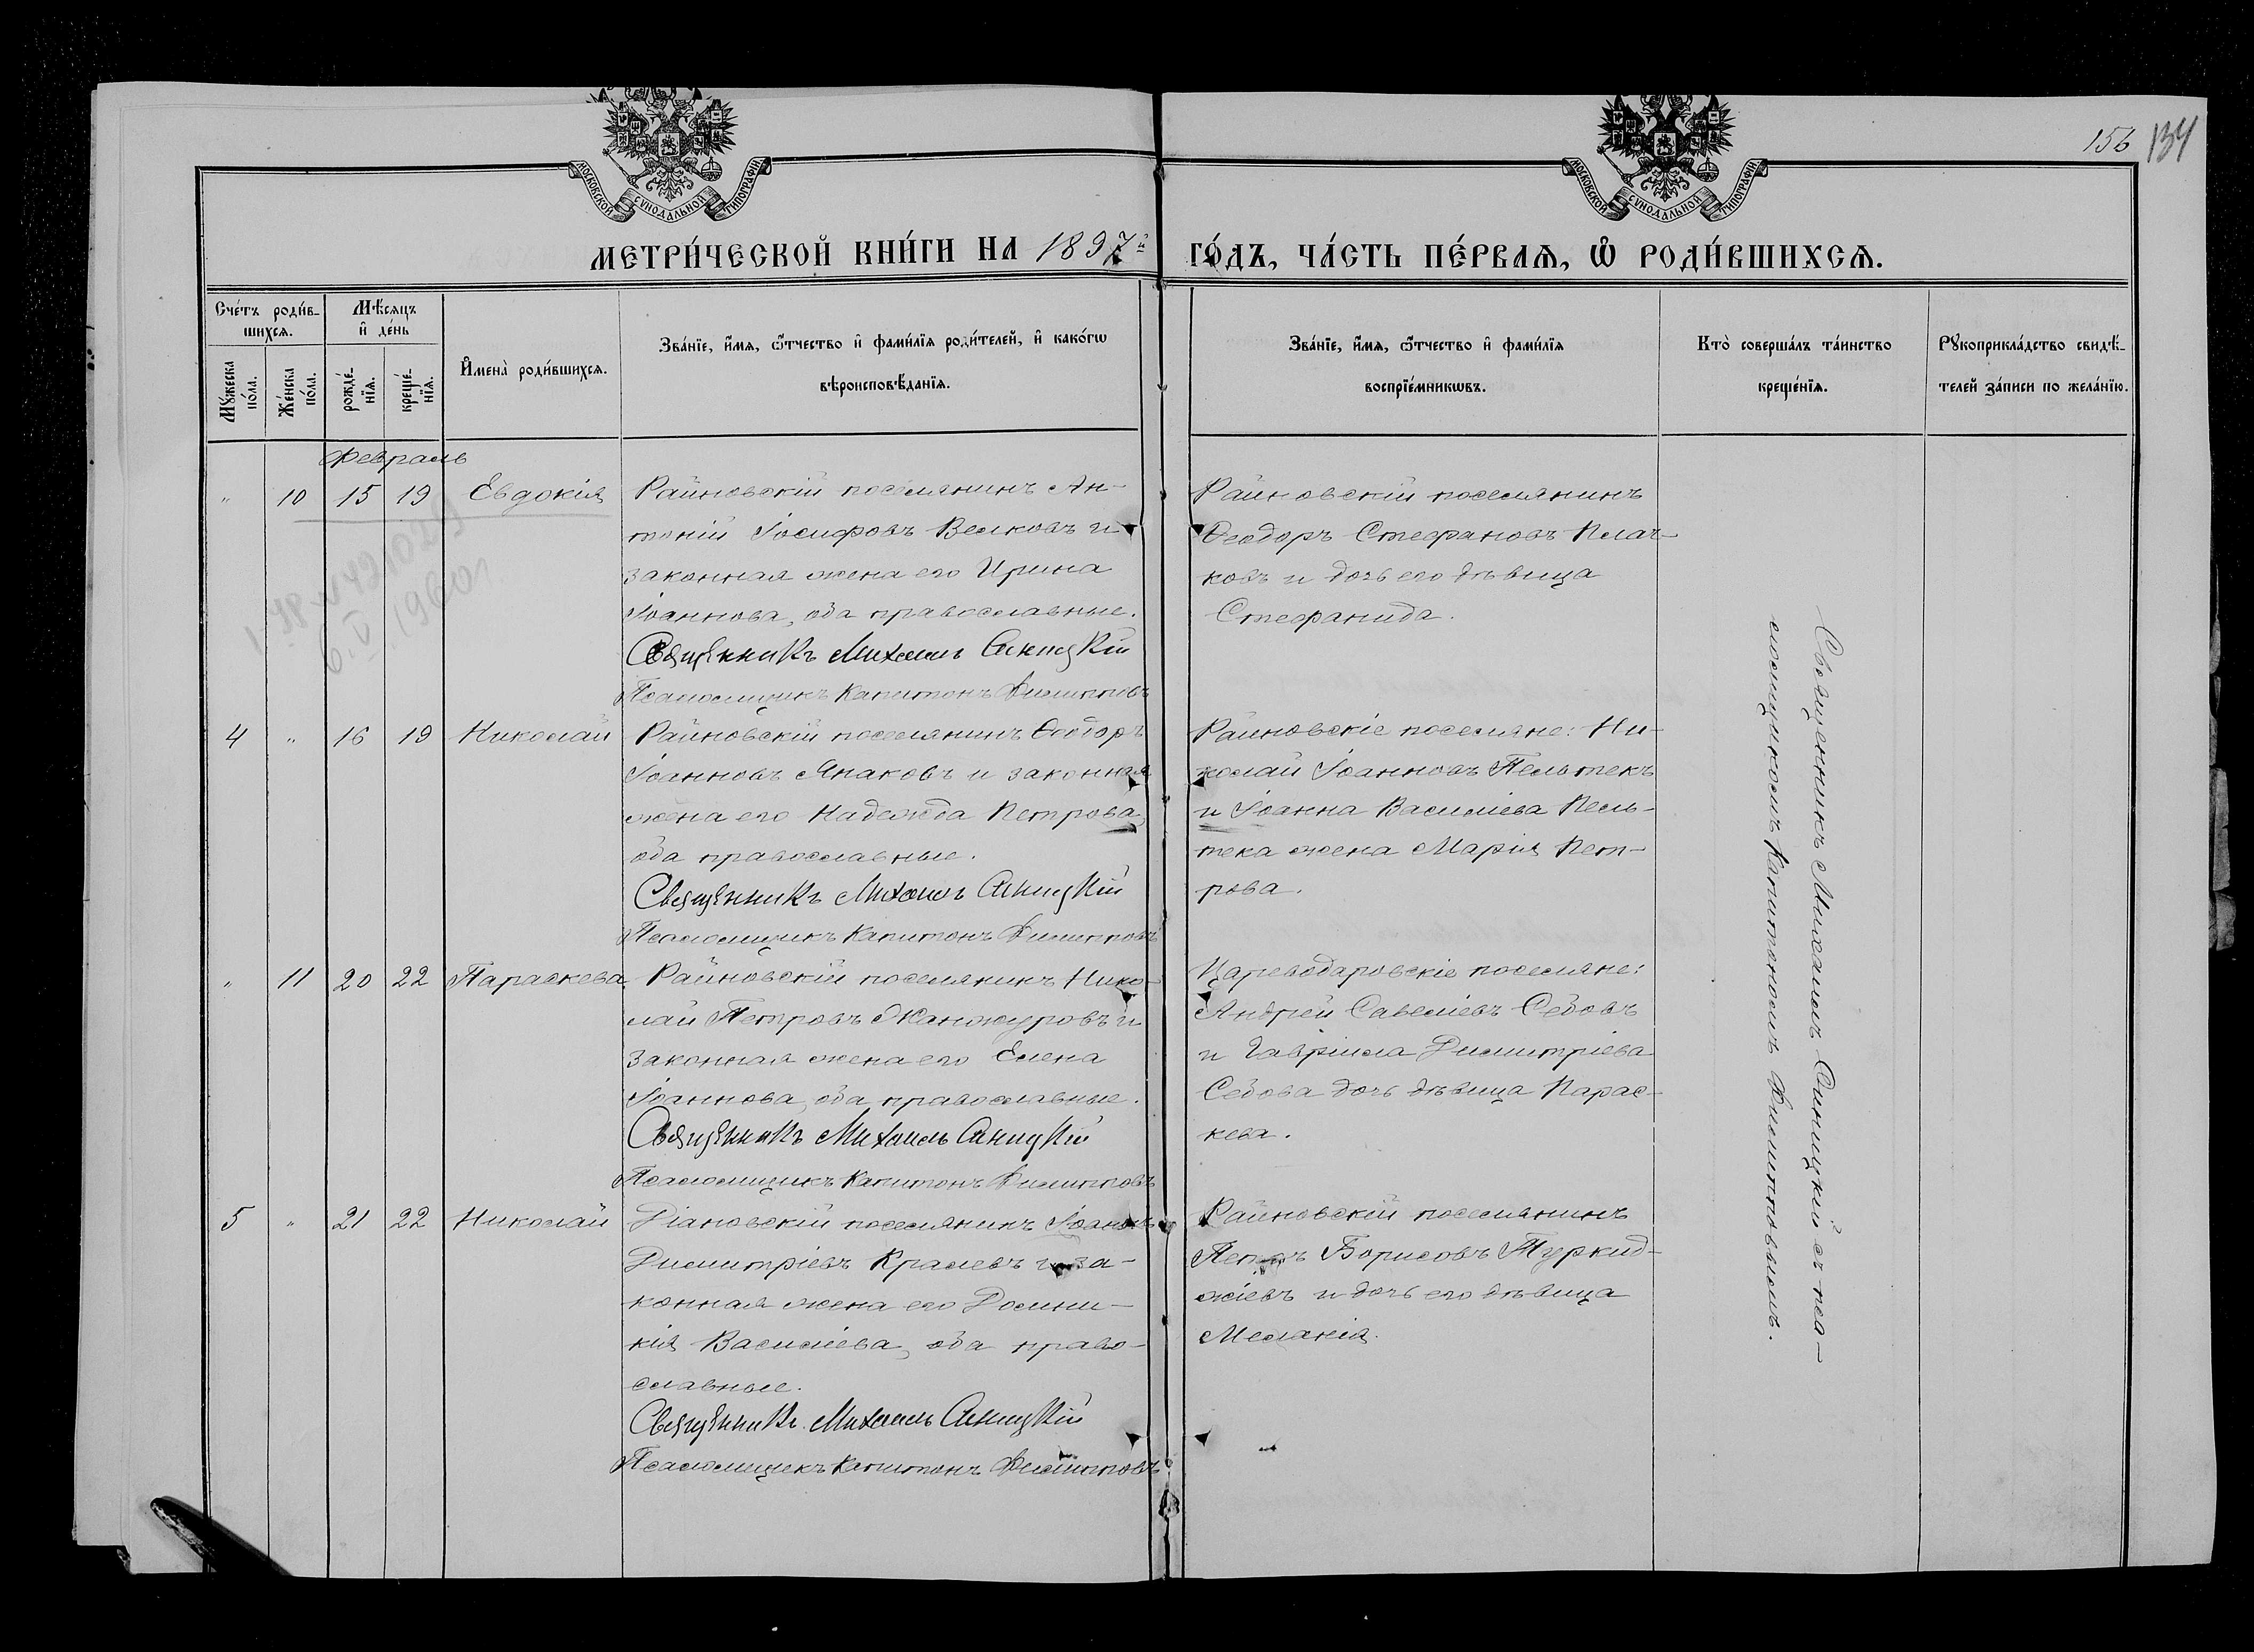 156 134
МОСКОВСКОЙ СУНОДАЛЬНОЙ ТИПОГРАФІИ
МОСКОВСКОЙ СУНОДАЛЬНОЙ ТИПОГРАФІИ
МЕТРИ́ЧЕСКОЙ КНИ́ГИ НА 1897й
ГО́ДЪ, ЧА́СТЬ ПЕ́РВАѦ, Ѡ҆ РОДИ́ВШИХСѦ.
Сче́тъ роди́в-
шихсѧ.
Мѣ́сѧцъ
и҆ де́нь
Мꙋ́жеска
по́ла.
Же́нска
по́ла.
рожде́-
нїѧ.
креще́-
нїѧ.
И҆мена̀ роди́вшихсѧ.
Зва́нїе, и҆́мѧ, ѻ҆́тчество и҆ фами́лїѧ роди́телей, и҆ како́гѡ
вѣроисповѣ́данїѧ.
Зва́нїе, и҆́мѧ, ѻ҆́тчество и҆ фами́лїѧ
воспрїе́мникѡвъ.
Кто̀ соверша́лъ та́инство
креще́нїѧ.
Рꙋкоприкла́дство свидѣ́-
телей за́писи по жела́нїю.
Февраль
" 10 15 19 Евдокія
Райновскій поселянинъ Ан-
тоній Іосифовъ Велковъ и
законная жена его Ирина
Іоаннова, оба православные.
Священникъ Михаилъ Синицкій
Псаломщикъ Капитонъ Филипповъ
Райновскій поселянинъ
Ѳеодоръ Стефановъ Плач-
ковъ и дочь его дѣвица
Стефанида.
4 " 16 19 Николай
Райновскій поселянинъ Ѳеодоръ
Іоанновъ Япаковъ и законная
жена его Надежда Петрова,
оба православные.
Священникъ Михаилъ Синицкій
Псаломщикъ Капитонъ Филипповъ
Райновскіе поселяне: Ни-
колай Іоанновъ Пельтекъ
и Іоанна Василіева Пель-
тека жена Марія Пет-
рова.
" 11 20 22 Параскева
Райновскій поселянинъ Нико-
лай Петровъ Жанжуровъ и
законная жена его Елена
Іоаннова, оба православные.
Священникъ Михаилъ Синицкій
Псаломщикъ Капитонъ Филипповъ
Царевдаровскіе поселяне:
Андрей Савеліевъ Седовъ
и Гавріила Димитріева
Седова дочь дѣвица Парас-
кева.
5 " 21 22 Николай
Діановскій поселянинъ Іоаннъ
Димитріевъ Кралевъ и за-
конная жена его Домни-
кія Василіева, оба право-
славные.
Священникъ Михаилъ Синицкій
Псаломщикъ Капитонъ Филипповъ
Райновскій поселянинъ
Петръ Борисовъ Туркид-
жіевъ и дочь его дѣвица
Меланія.
Священникъ Михаилъ Синицкій съ пса-
ломщикомъ Капитономъ Филипповымъ.